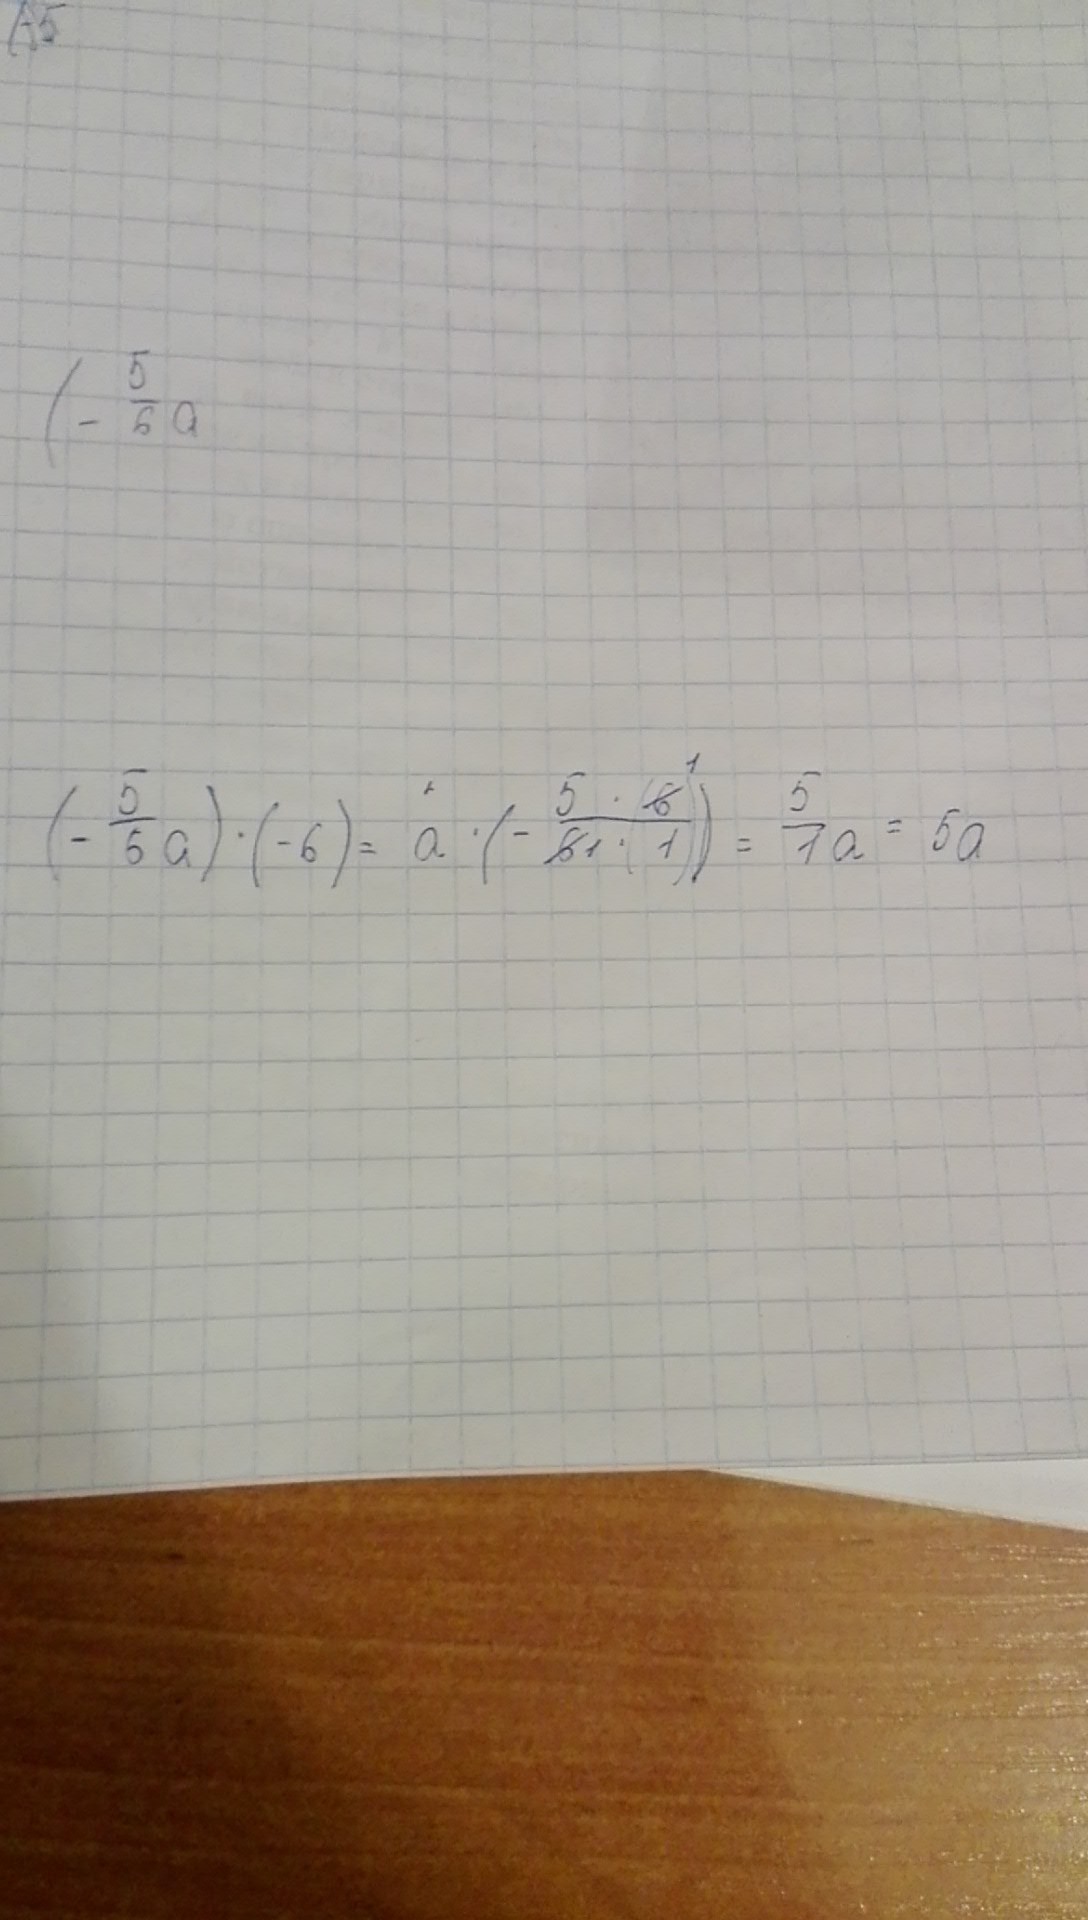 A5
(- 5/6 a
(- 5/6 a) · (-6) = a · (- 5 · (6 1)/6 1 · (1)) = 5/1 a = 5a